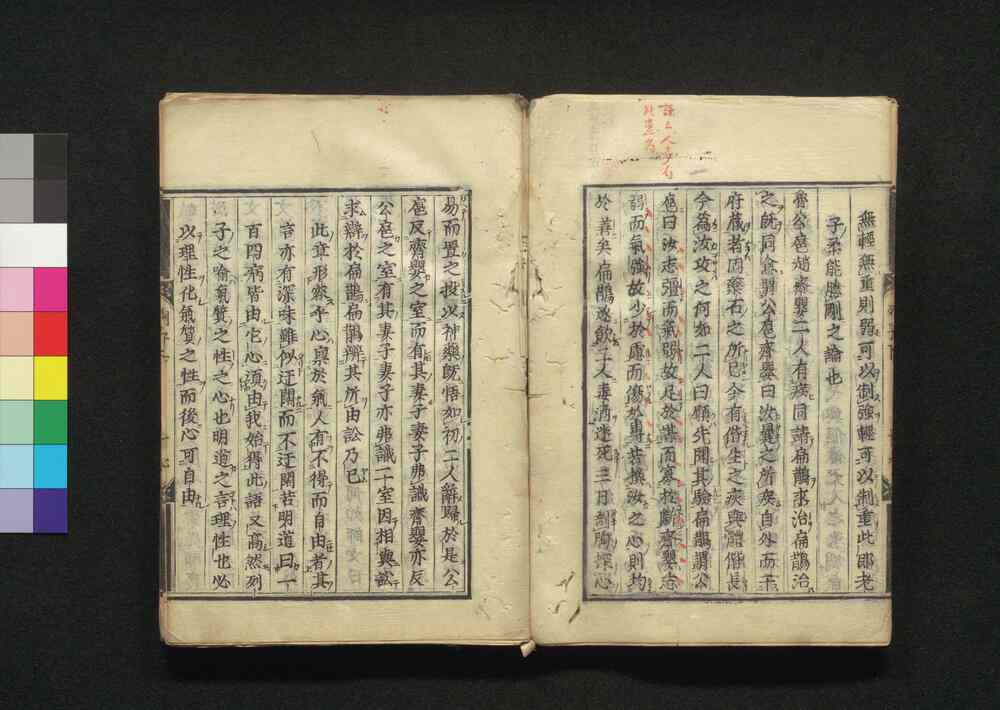 無輕無重則弱可以制強輕可以制重此即老
子柔能勝剛之論也
魯公扈趙齊嬰二人有疾同請扁鵲求治扁鵲治
之既同愈謂公扈齊嬰曰汝曩之所疾自外而干
府藏者固藥石之所已今有偕生之疾與體偕長
今為汝攻之何如二人曰願先聞其驗扁鵲謂公
扈曰汝志彊而氣弱故足於謀而寡於斷齊嬰志
弱而氣強故少於慮而傷於專若換汝之心則均
於善矣扁鵲遂飲二人毒酒迷死三日剖胸探心
易而置之投以神藥既悟如初二人辭歸於是公
扈反齊嬰之室而有其妻子妻子弗識齊嬰亦反
公扈之室有其妻子妻子亦弗識二室因相與訟
求辨於扁鵲扁鵲辨其所由訟乃已
此章形容乎心與於氣人有不得而自由者其
言亦有深味雖似迂闊而不迂闊若明道曰一
百四病皆由它心須由我始得此語又高然列
子之喻氣質之性之心也明道之言理性也必
以理性化氣質之性而後心可自由